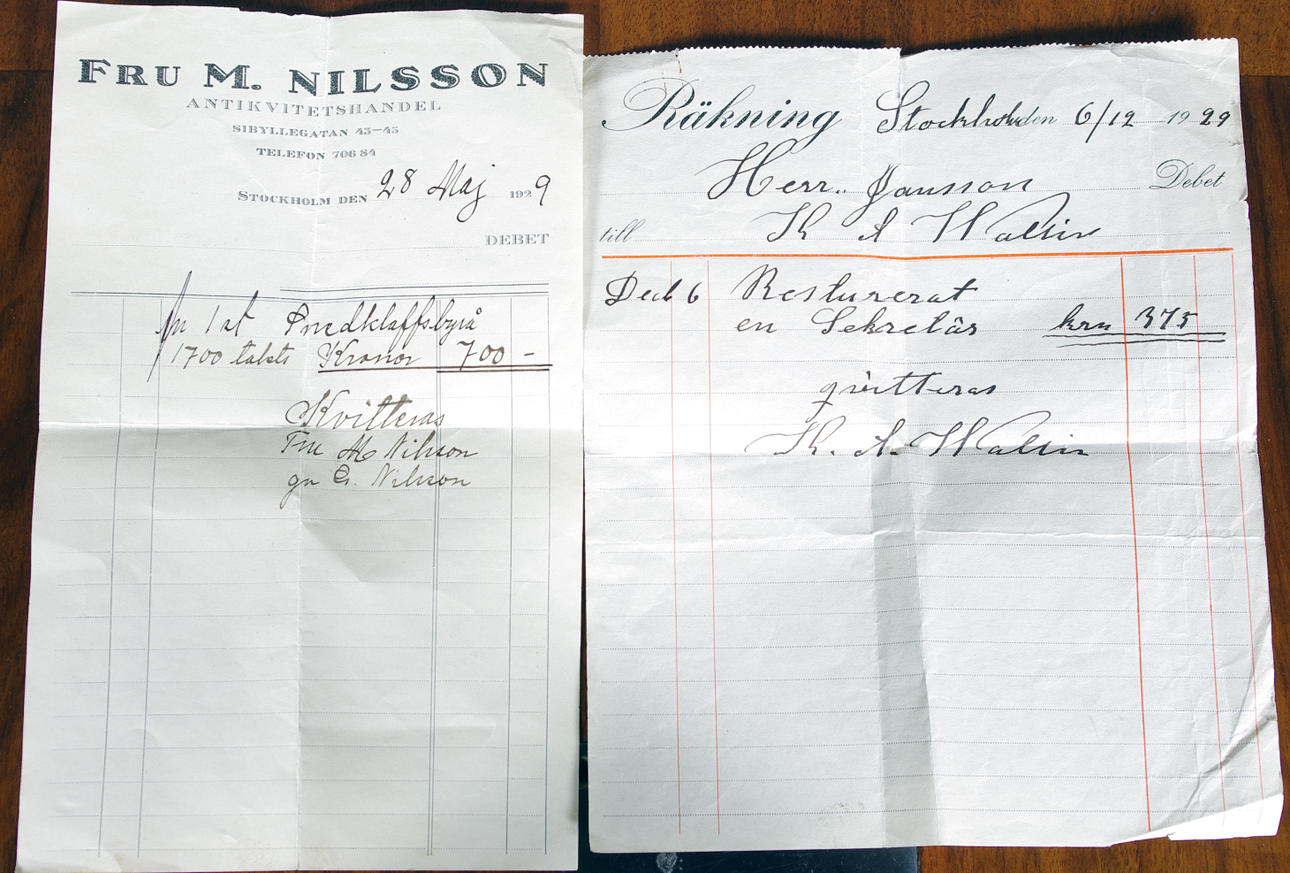 FRU M. NILSSON
ANTIKVITETSHANDEL
SIBYLLEGATAN 43-45
TELEFON 706 84
STOCKHOLM DEN 28 Maj 1929
DEBET
1 st Snedklaffsbyrå
1700 talets Kronor 700 -
Kvitteras
Fru M Nilsson
gn G. Nilsson
Räkning Stockholm den 6/12 1929
Herr. Jansson Debet
till K A Wallin
Decb 6 Resturerat
en Sekretär krn 375
qvitteras
K. A. Wallin